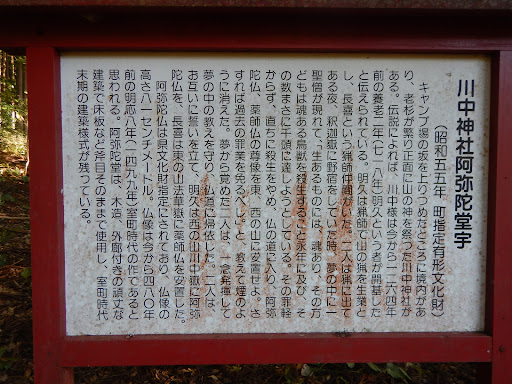 川中神社阿弥陀堂宇
(昭和五五年 町指定有形文化財)
キャンプ場の坂を上りつめたところに境内があ
り、老杉が繁り正面に山の神を祭った川中神社が
ある。伝説によれば、川中様は今から一二六四年
前の養老二年(七一八年)明久という者が開基した
と伝えられている。明久は猟師で山の猟を生業と
し、長喜という猟師仲間がいた。二人は猟に出て
ある夜、釈迦嶽に野宿をしていた時、夢の中に一
聖僧が現れて「生あるものには、魂あり、その方
どもは魂ある鳥獣を殺生すること永年に及び、そ
の数まさに千頭に達しようとしている。その罪軽
からず、直ちに殺生をやめ、仏の道に入り、阿弥
陀仏、薬師仏の尊像を東、西の山に安置せよ。さ
すれば過去の罪業を免るべし」と、教えて煙のよ
うに消えた。夢から覚めた二人は、一念発種して
夢の中の教えを守り、仏道に帰依した。二人は、
お互いに誓いを立て、明久は西の山川中嶽に阿弥
陀仏を、長喜は東の山法華嶽に薬師仏を安置した。
阿弥陀仏は県文化財指定にされており、仏像の
高さ八一センチメートル。仏像は今から四八〇年
前の明応八年(一四九九年)室町時代の作であると
思われる。阿弥陀堂は、木造、外廊付きの頑丈な
建築で床板など斧目をそのままで使用し、室町時代
末期の建築様式が残っている。